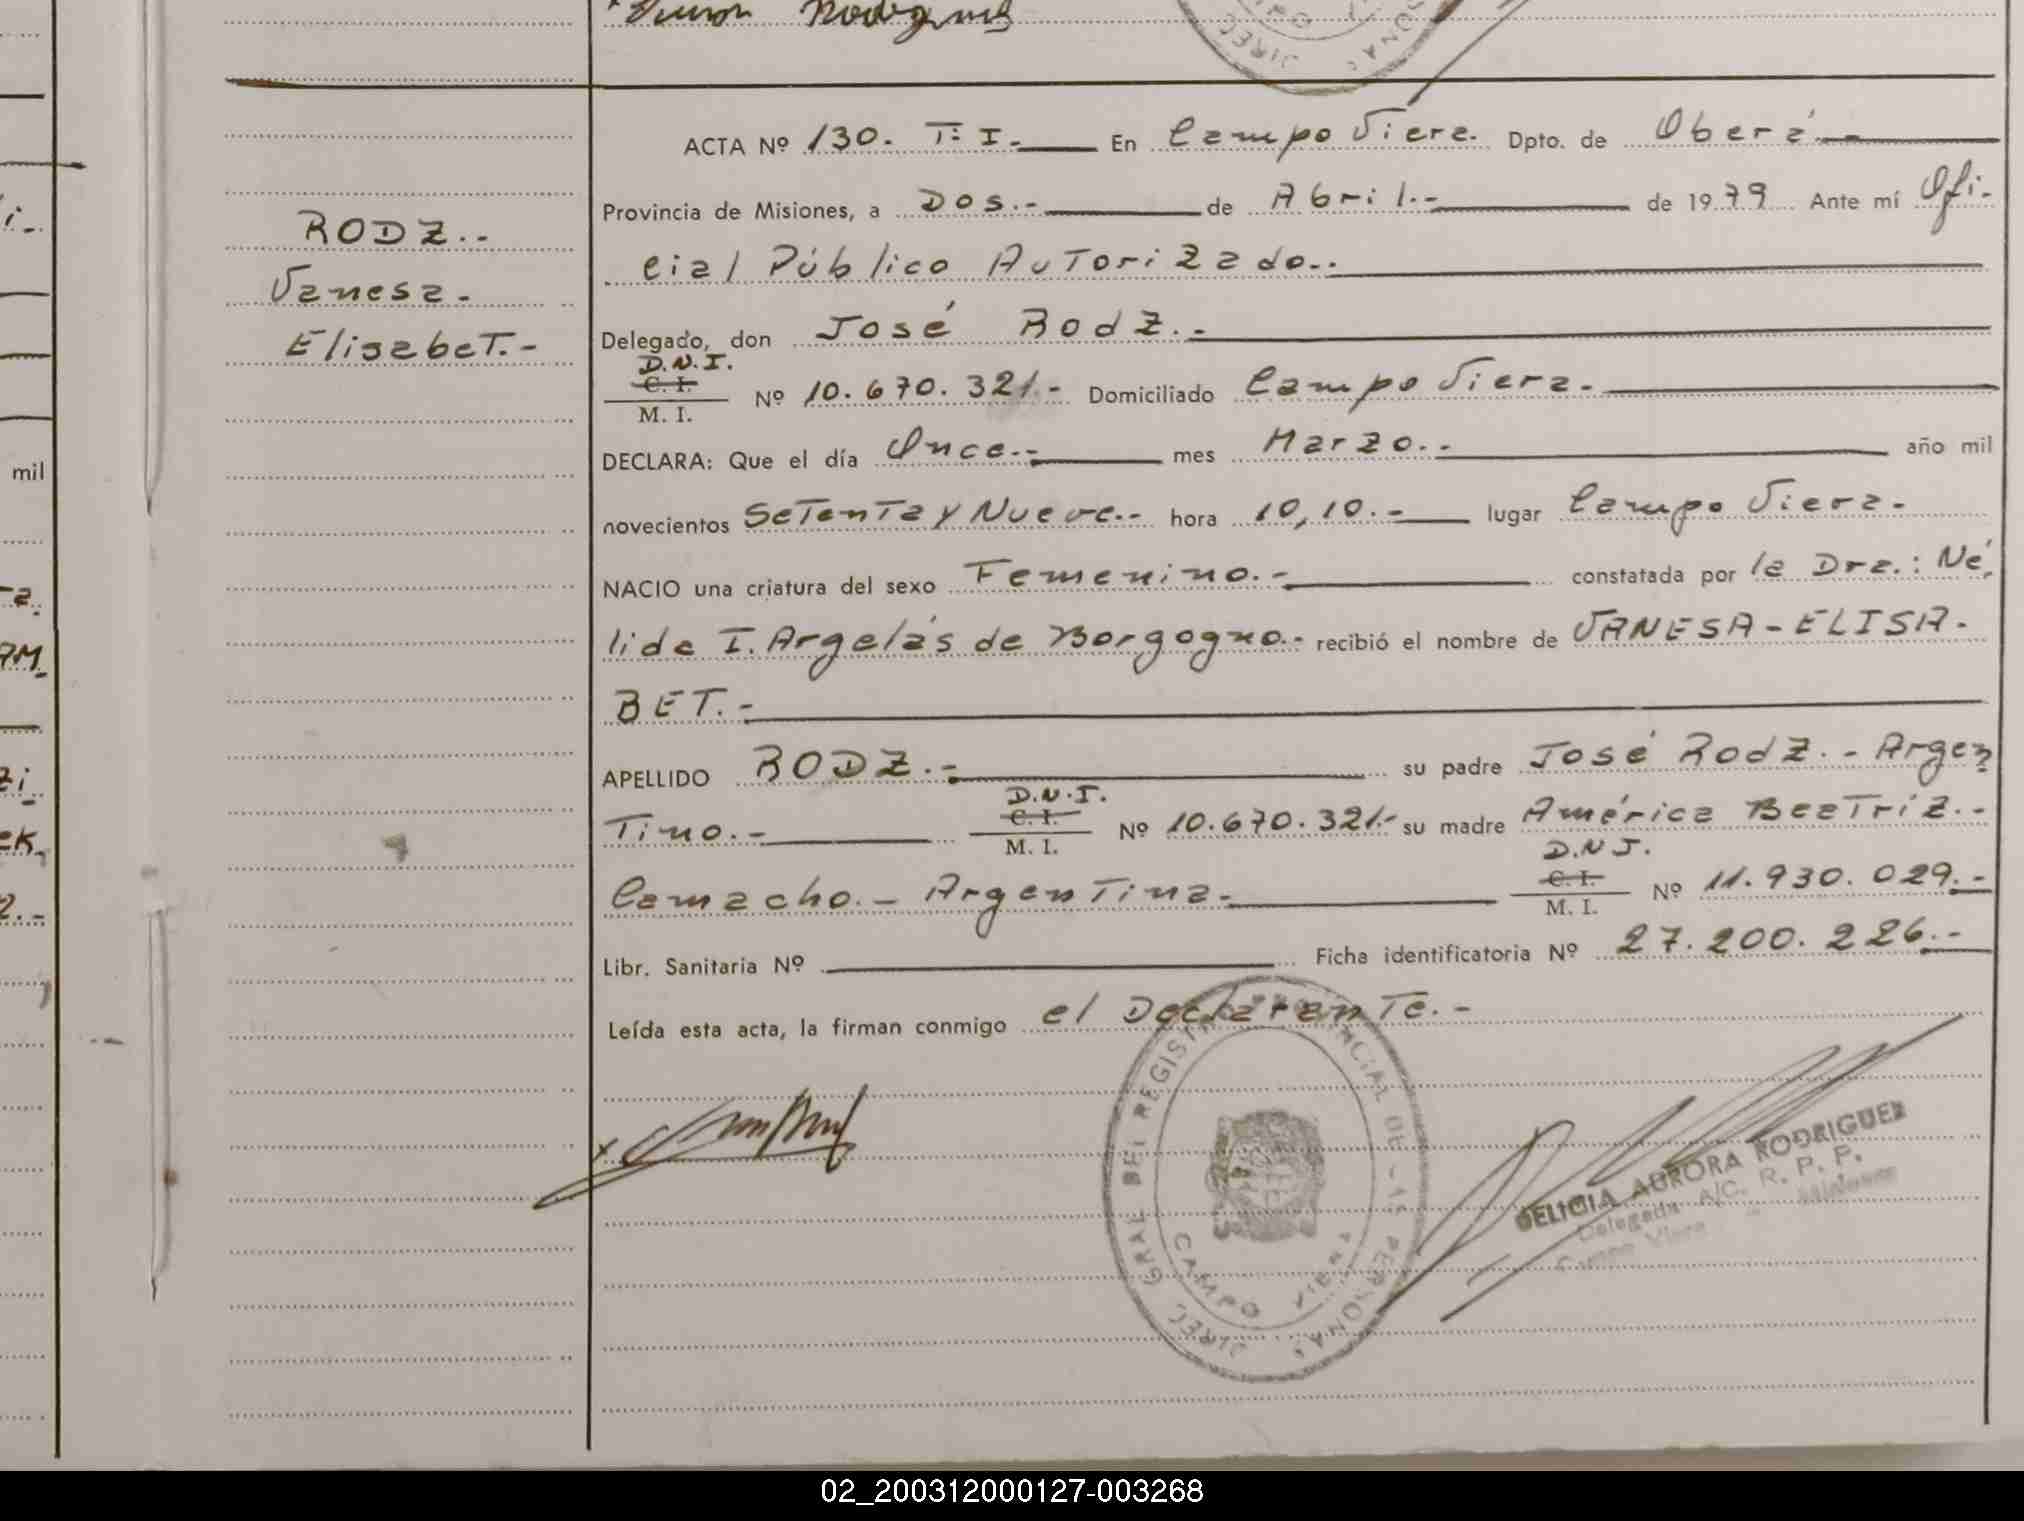 Rodriguez
ACTA Nº 130. Tº I.- En Campo Viera. Dpto. de Oberá.-
Provincia de Misiones, a Dos.- de Abril.- de 1979 Ante mí Ofi-
RODZ.-
cial Público Autorizado.-
Vanesa.
Elisabet.-
Delegado, don José Rodz.-
D.N.I.
C. I.
M. I. Nº 10.670.321.- Domiciliado Campo Viera.
DECLARA: Que el día Once.- mes Marzo.- año mil
novecientos Setenta y Nueve.- hora 10,10.- lugar Campo Viera.
NACIO una criatura del sexo Femenino.- constatada por la Dra.: Né,
lida I. Argelás de Borgogno.- recibió el nombre de VANESA-ELISA-
BET.-
APELLIDO RODZ.- su padre José Rodz.- Argen
D.N.I.
tino.- C. I. M. I. Nº 10.670.321.- su madre América Beatriz.-
D.N.I.
Camacho.- Argentina.- C. I. M. I. Nº 11.930.029.-
Libr. Sanitaria Nº Ficha identificatoria Nº 27.200.226.-
Leída esta acta, la firman conmigo el Declarante.-
DIREC. GRAL DEL REGISTRO PROVINCIAL DE LAS PERSONAS
CAMPO VIERA
DELICIA AURORA RODRIGUEZ
Delegada A/C. R. P. P.
Campo Viera - Misiones
mil
02_200312000127-003268